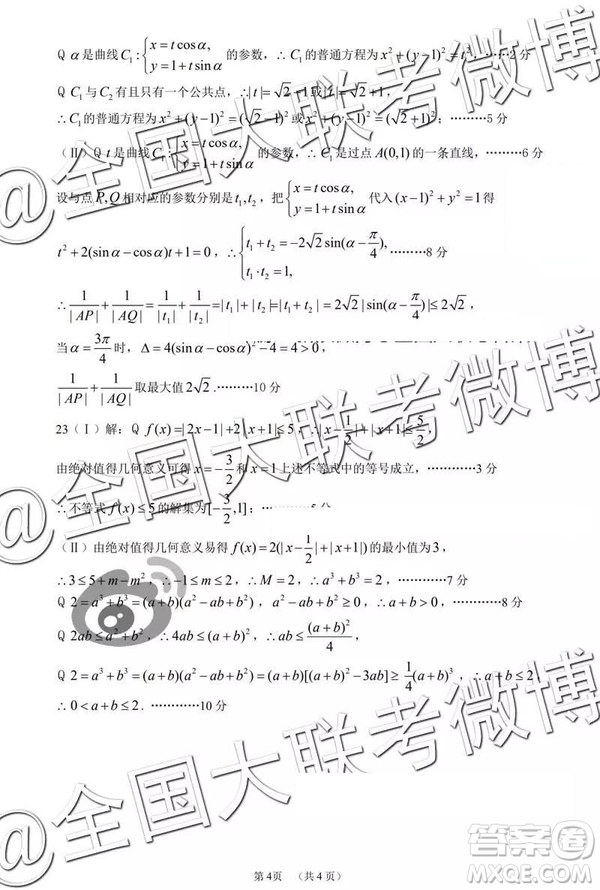 Q α是曲线C₁:{x=t cosα, y=1+t sinα 的参数，∴C₁的普通方程为x²+(y−1)²=t²，……2分
Q C₁与C₂有且只有一个公共点，∴|t|=√2−1或|t|=√2+1，
∴C₁的普通方程为x²+(y−1)²=(√2−1)²或x²+(y−1)²=(√2+1)²；………5分
（Ⅱ）Q t是曲线C₁:{x=t cosα, y=1+t sinα 的参数，∴C₁是过点A(0,1)的一条直线，………6分
设与点P,Q相对应的参数分别是t₁,t₂，把{x=t cosα, y=1+t sinα 代入(x−1)²+y²=1得
t²+2(sinα−cosα)t+1=0，∴{t₁+t₂=−2√2sin(α−π/4), t₁·t₂=1, ………8分
∴1/|AP|+1/|AQ|=1/|t₁|+1/|t₂|=|t₁|+|t₂|=|t₁+t₂|=2√2|sin(α−π/4)|≤2√2，
当α=3π/4时，Δ=4(sinα−cosα)²−4=4>0，
1/|AP|+1/|AQ|取最大值2√2.………10分
23（Ⅰ）解：Q f(x)=|2x−1|+2|x+1|≤5，∴|x−1/2|+|x+1|≤5/2，
由绝对值得几何意义可得x=−3/2和x=1上述不等式中的等号成立，…………3分
∴不等式f(x)≤5的解集为[−3/2,1]；
（Ⅱ）由绝对值得几何意义易得f(x)=2(|x−1/2|+|x+1|)的最小值为3，
∴3≤5+m−m²，∴−1≤m≤2，∴M=2，∴…………7分
Q 2=a³+b³=(a+b)(a²−ab+b²)，a²−ab+b²≥0，∴a+b>0，…………8分
Q 2ab≤a²+b²，∴4ab≤(a+b)²，∴ab≤(a+b)²/4，
Q 2=a³+b³=(a+b)(a²−ab+b²)=(a+b)[(a+b)²−3ab]≥1/4(a+b)³，∴a+b≤2，
∴0<a+b≤2．…………10分
@全国大联考微博
@全国大联考微博
@全国大联考微博
第4页 （共4页）
答案圈
MXQE.COM